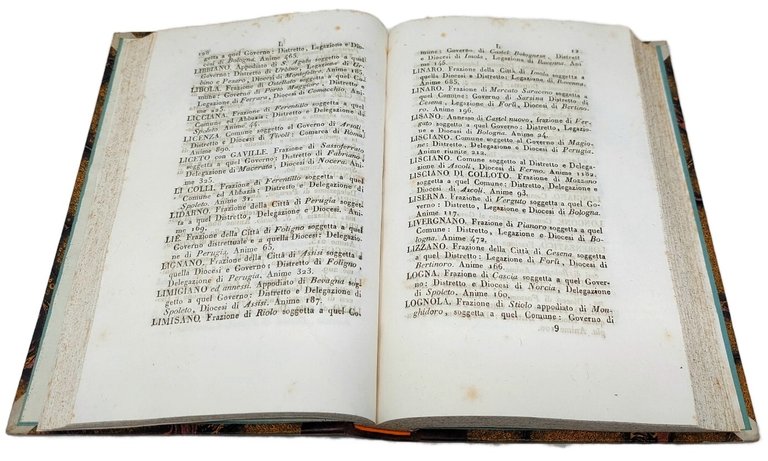 128
L
getto a quel Governo: Distretto, Legazione e Dio-
cesi di Bologna. Anime 465.
LIBBIANO. Appodiato di S. Agata soggetto a quel
Governo: Distretto d'Urbino, Legazione di Ur-
bino e Pesaro, Diocesi di Montefeltre. Anime 185.
LIBOLA. Frazione di Ostellato soggetta a quel
Comune: Governo di Porto Maggiore, Distretto e
Legazione di Ferrara, Diocesi di Comacchio. Ani-
me 225.
LICCIANA. Frazione di Ferentillo soggetta a quel
Comune ed Abbazia: Distretto e Delegazione di
Spoleto. Anime 44.
LICENZA Comune soggetto al Governo di Arsoli,
Distretto e Diocesi di Tivoli: Comarca di Roma.
Anime 890.
LIGETO con GAVILLE. Frazione di Sassoferrato
soggetta a quel Governo: Distretto di Fabriano,
Delegazione di Macerata, Diocesi di Nocera. Ani-
me
LI COLLI. Frazione di Ferentillo soggetta a quel
Comune ed Abbazia: Distretto e Delegazione di
Spoleto. Anime 31.
LIDARNO. Frazione della Città di Perugia sogget-
ta a quel Distretto, Delegazione e Diocesi. Ani-
me 169.
LIÈ. Frazione della Città di Foligno soggetta a quel
Governo distrettuale e a quella Diocesi: Delegazione
di Perugia. Anime 65.
LIGNANO. Frazione della Città di Assisi soggetta a
quella Diocesi e Governo: Distretto di Foligno,
Delegazione di Perugia. Anime 323.
LIMIGIANO ed annessi. Appodiato di Bevagna sog-
getto a quel Governo: Distretto e Delegazione di
Spoleto, Diocesi di Assisi. Anime 187.
LIMISANO. Frazione di Riolo soggetta a quel Co-
L
mune: Governo di Castel Bolognese, Distretto
e Diocesi di Imola, Legazione di Ravenna. Ani-
me 148.
LINARO. Frazione della Città di Imola soggetta a
quella Diocesi e Distretto: Legazione di Ravenna.
Anime 685.
LINARO. Frazione di Mercato Saraceno soggetta a
quel Comune: Governo di Sarsina Distretto di
Cesena, Legazione di Forlì, Diocesi di Bertino-
ro. Anime 196.
LISANO. Annesso di Castel nuovo, frazione di Ver-
gato soggetta a quel Governo: Distretto, Legazio-
ne e Diocesi di Bologna. Anime 24.
LISCIANO. Comune soggetto al Governo di Magio-
ne: Distretto, Delegazione e Diocesi di Perugia.
Anime riunite 212.
LISCIANO. Comune soggetto al Distretto e Delega-
zione di Ascoli, Diocesi di Fermo. Anime 1182.
LISCIANO DI COLLOTO. Frazione di Mozzano
soggetta a quel Comune: Distretto, Delegazione e
Diocesi di Ascoli. Anime 93.
LISERNA. Frazione di Vergato soggetta a quel Go-
verno: Distretto, Legazione e Diocesi di Bologna.
Anime 117.
LIVERGNANO. Frazione di Pianoro soggetta a quel
Comune: Distretto, Legazione e Diocesi di Bo-
logna. Anime 472.
LIZZANO. Frazione della Città di Cesena soggetta
a quel Distretto: Legazione di Forlì, Diocesi di
Bertinoro. Anime 166.
LOGNA. Frazione di Cascia soggetta a quel Gover-
no: Distretto e Diocesi di Norcia, Delegazione
di Spoleto. Anime 160.
LOGNOLA. Frazione di Stiolo appodiato di Mon-
ghidoro, soggetta a quel Comune: Governo di
9